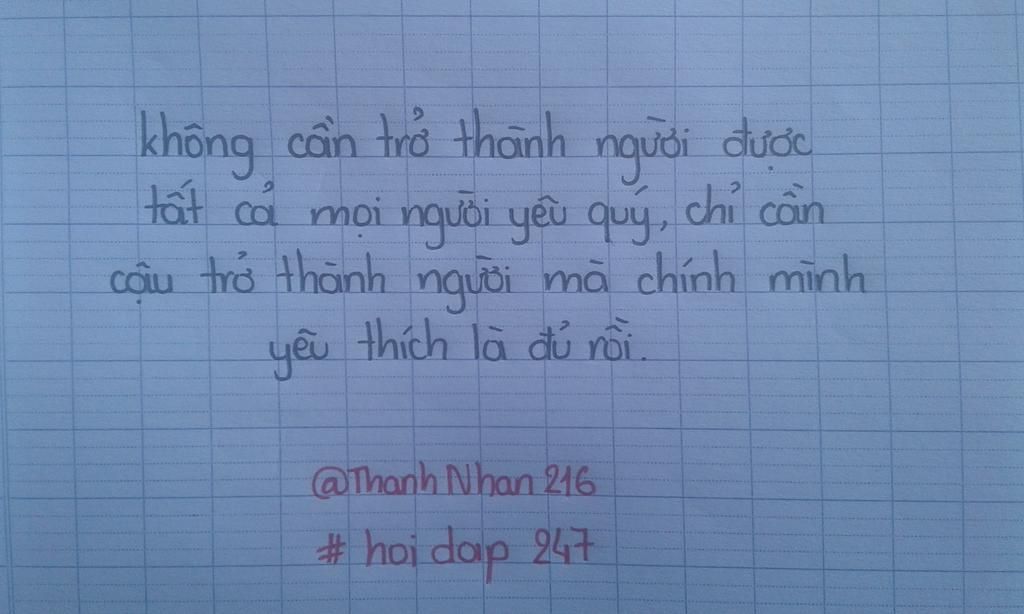 không cần trở thành người được
tất cả mọi người yêu quý, chỉ cần
cậu trở thành người mà chính mình
yêu thích là đủ rồi.
@Thanh Nhan 216
# hoi dap 247